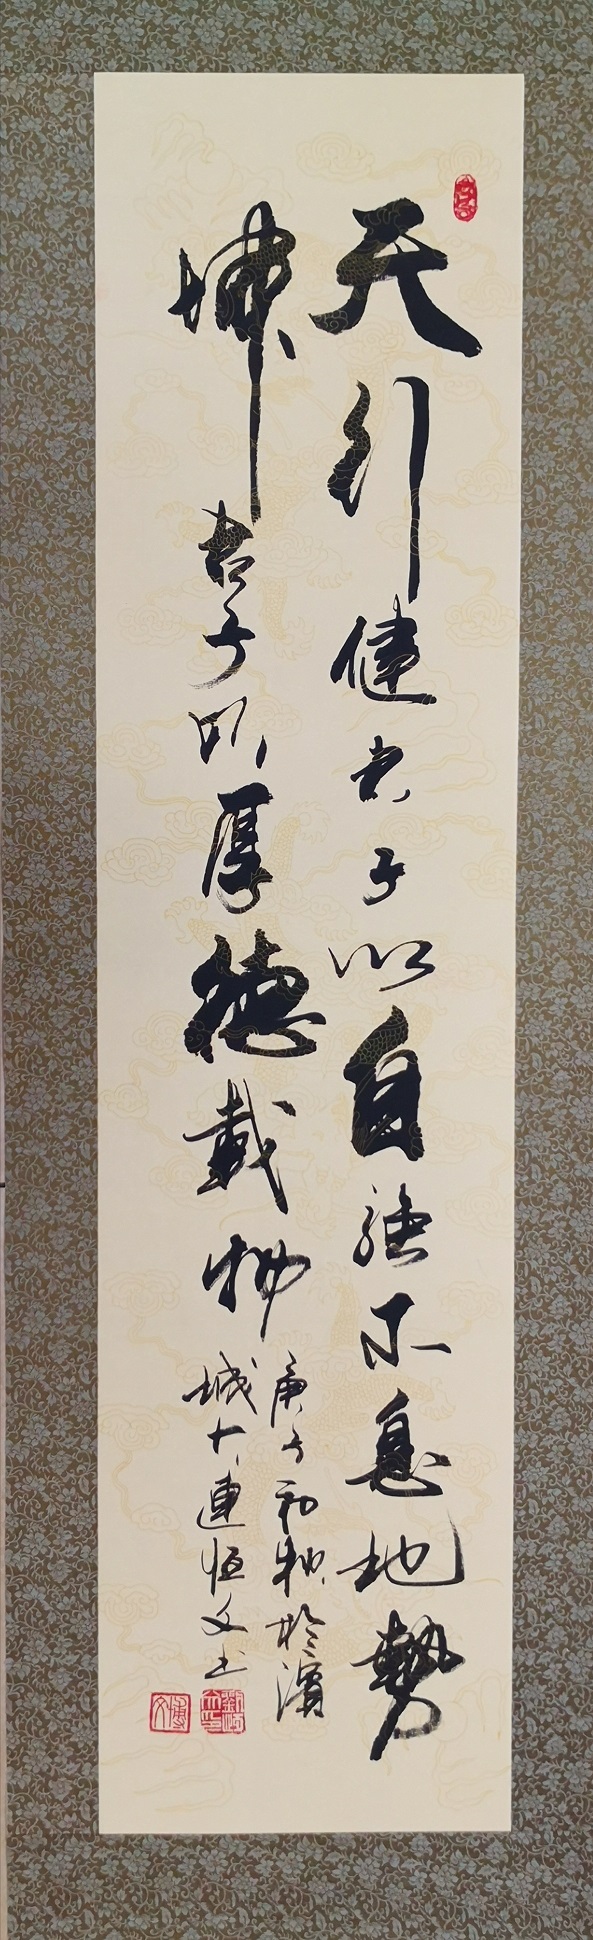 天行健君子以自强不息地勢
坤君子以厚德載物
庚子初秋於濱
城大連恒文书